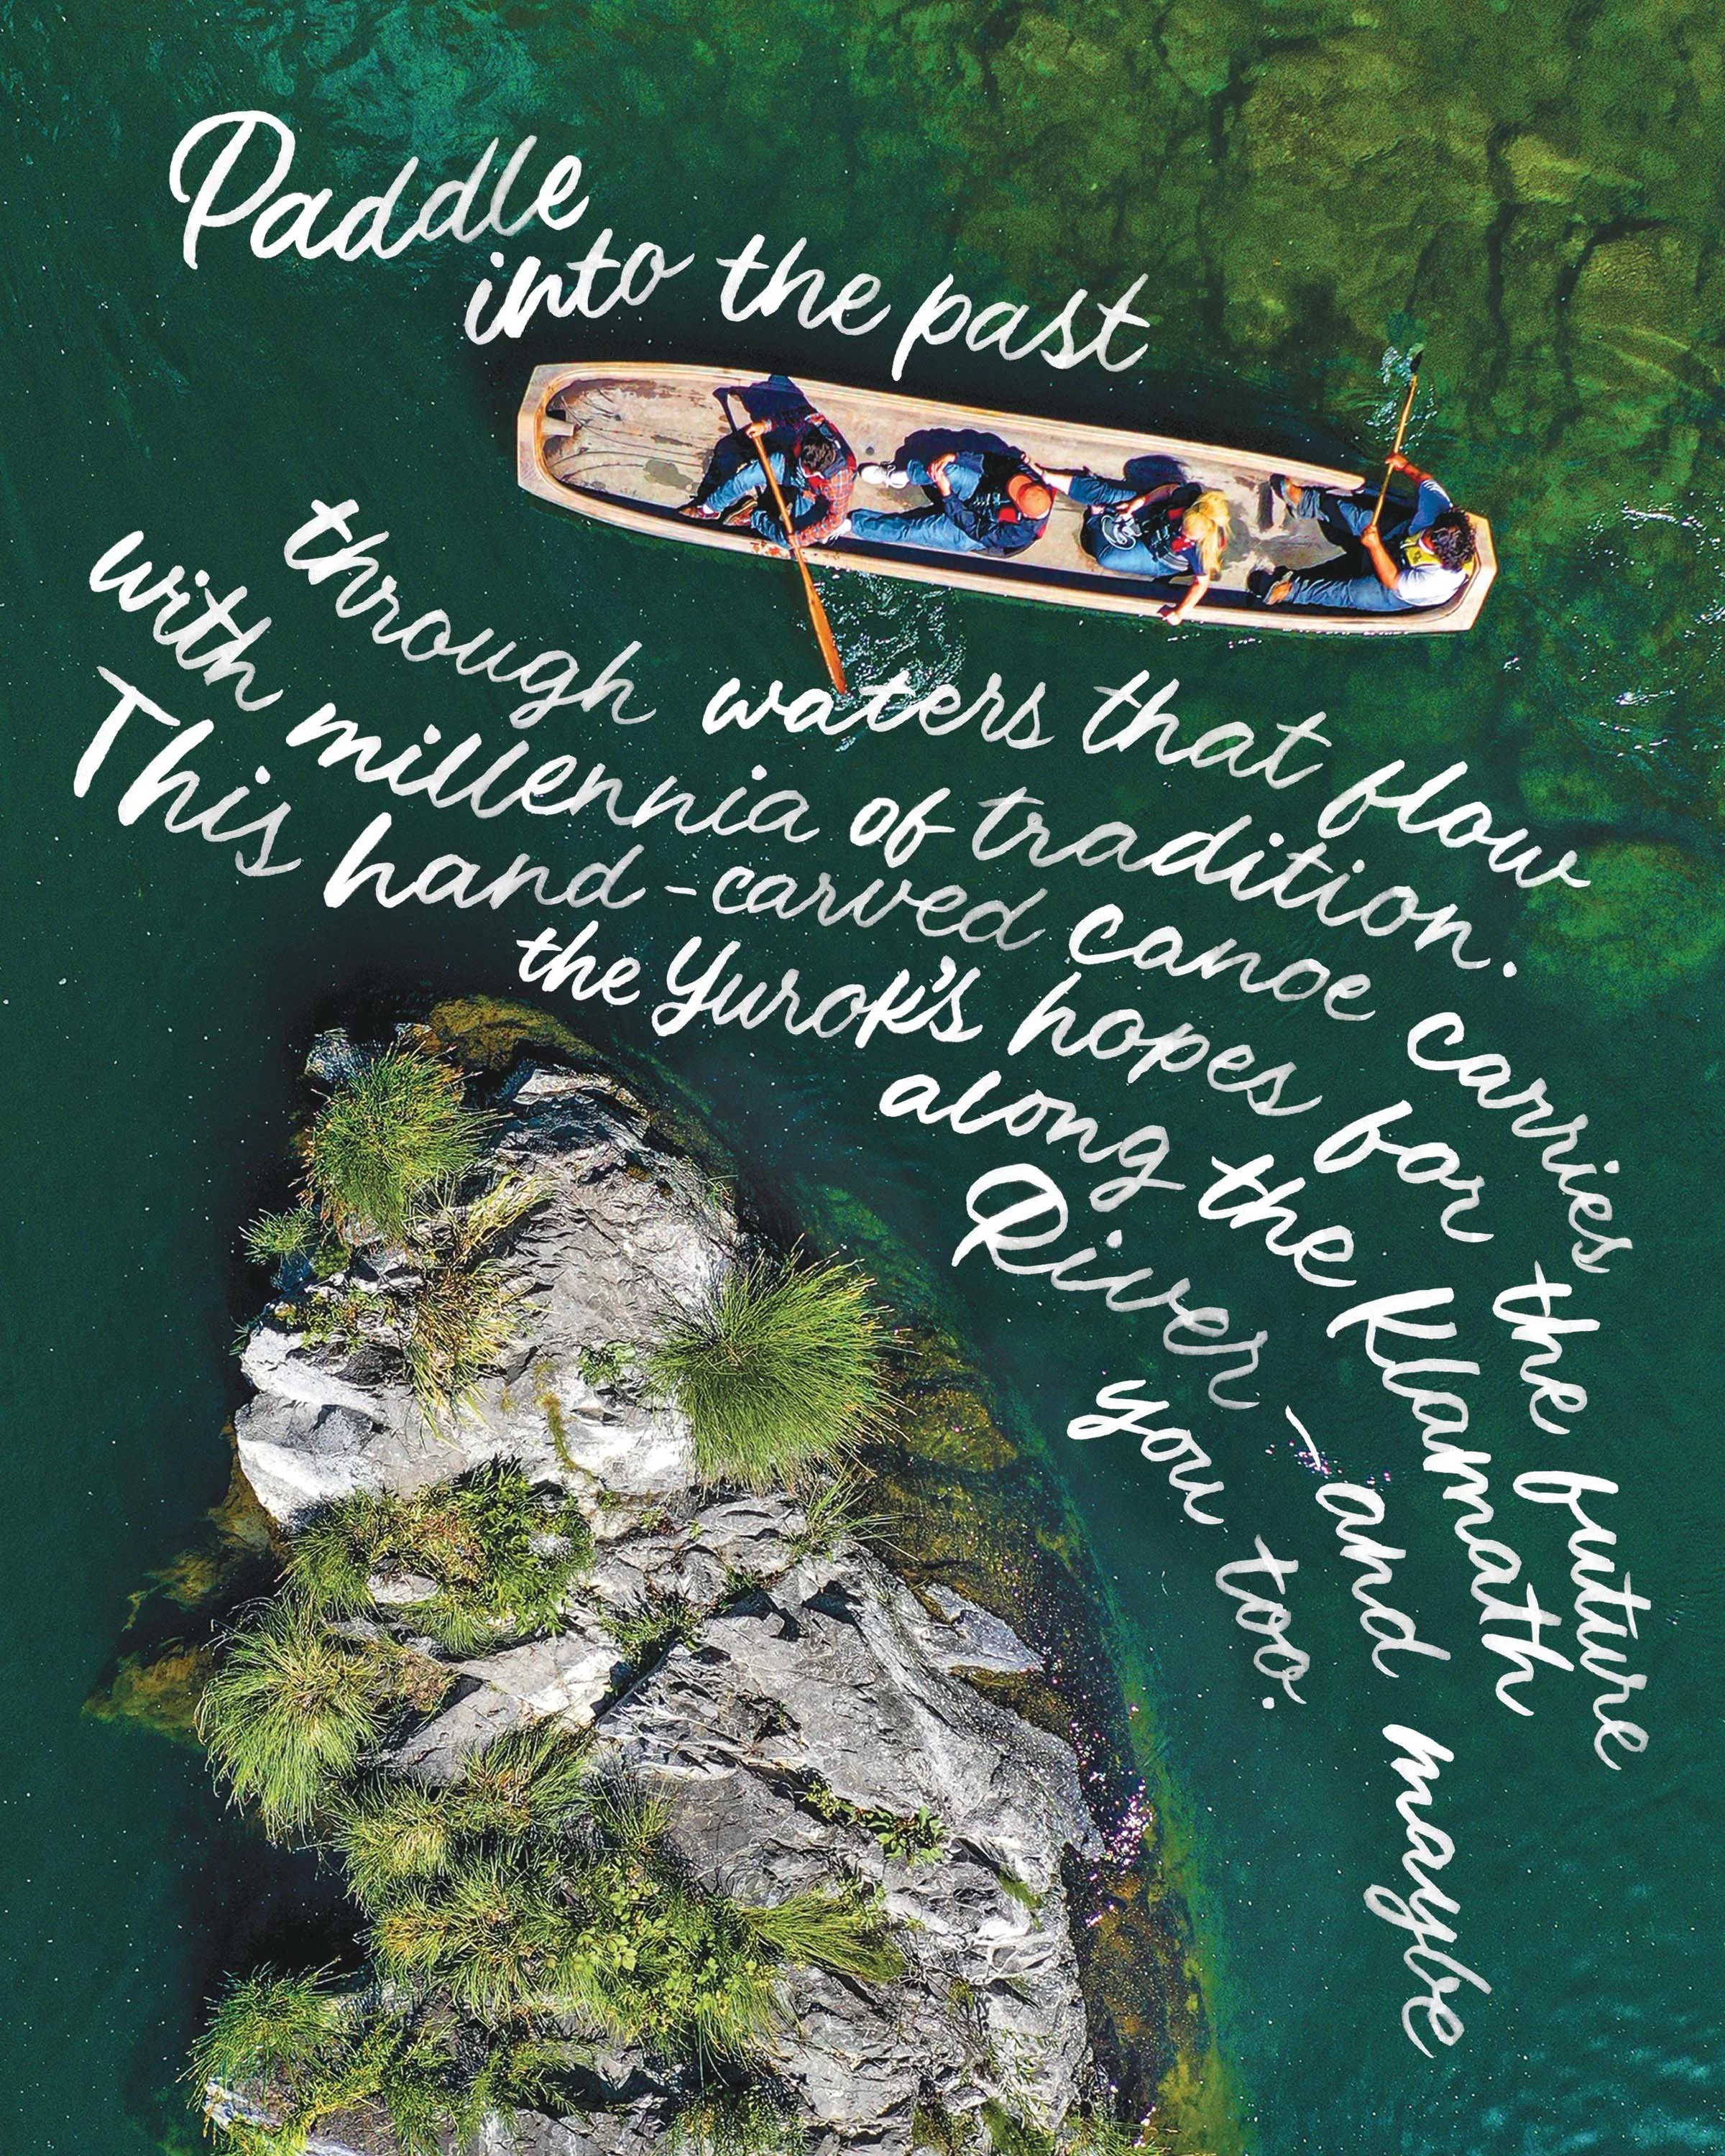 Paddle
into the past
through waters that flow
with millennia of tradition.
This hand-carved canoe carries the future
the Yurok's hopes for the Klamath
along the Klamath
River – and maybe
you too.